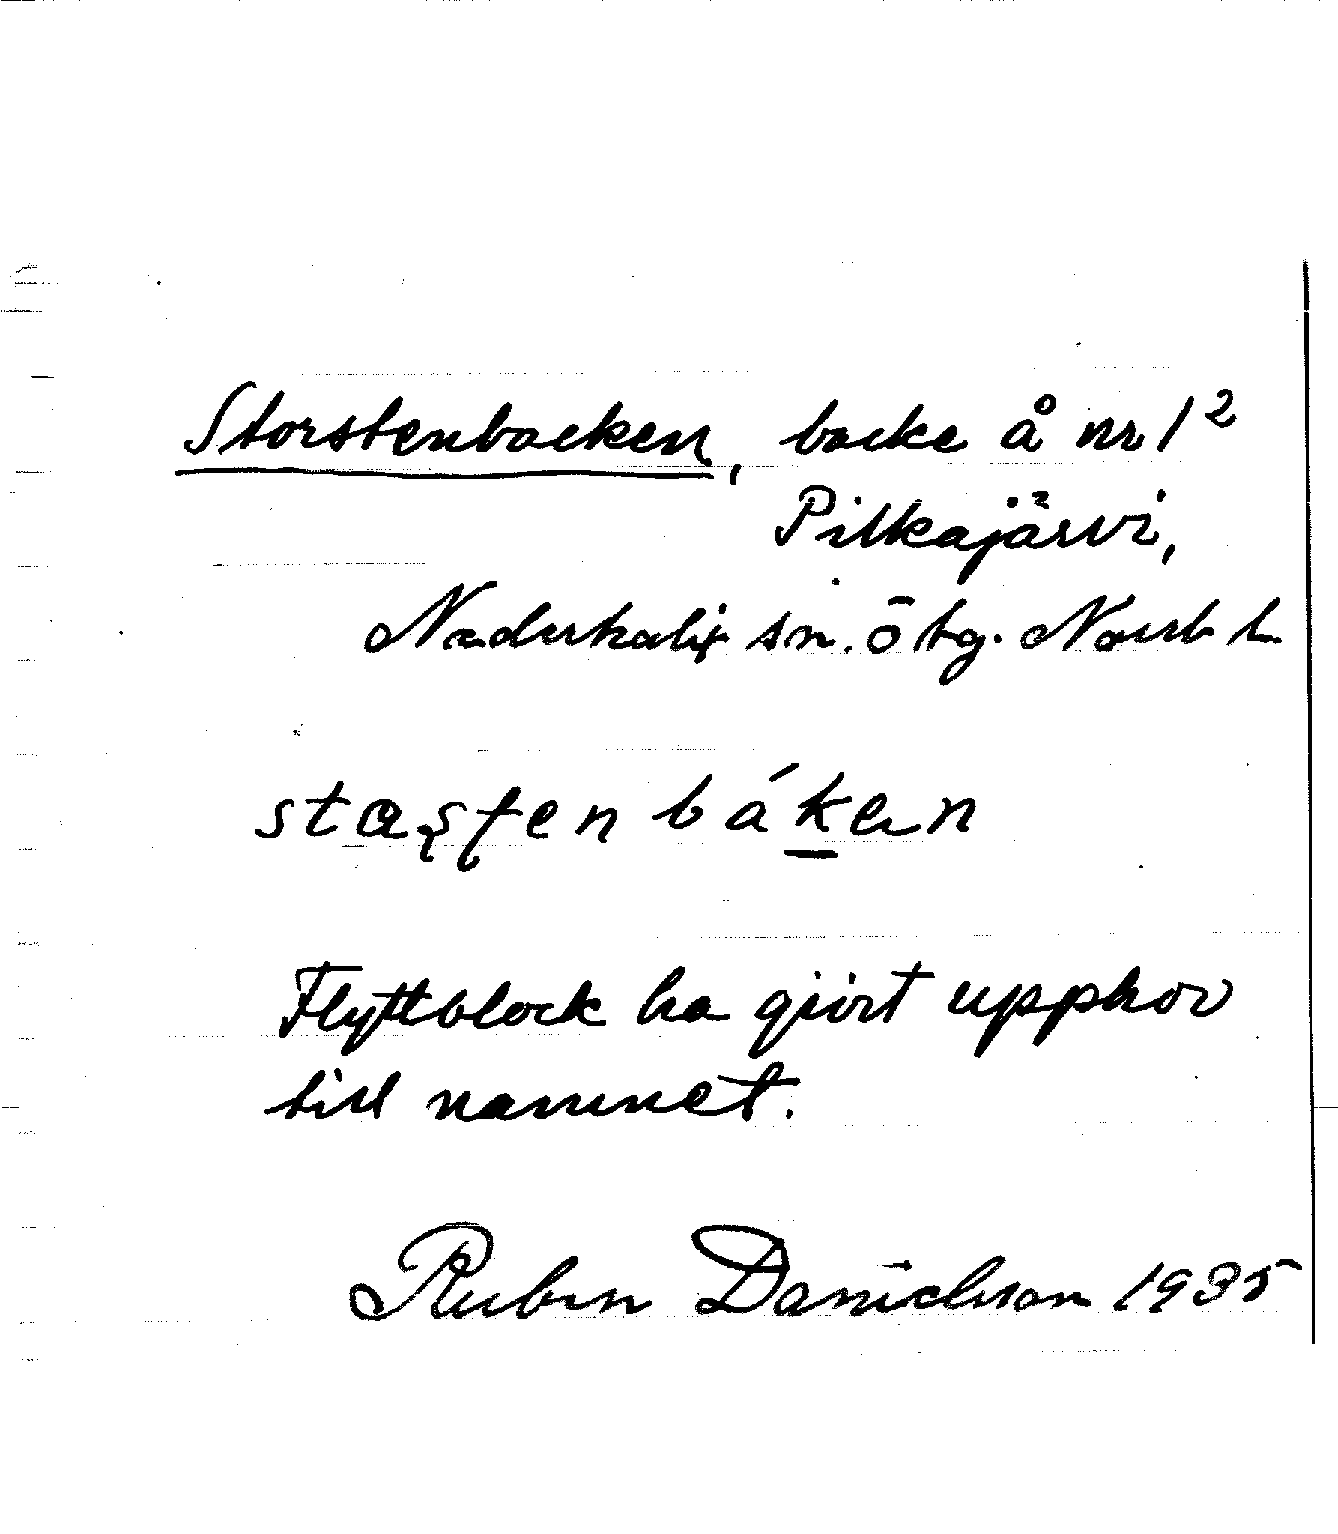 Storstenbacken, backe å nr 1²
Pitkajärvi,
Nederkalix sn. ö tg. Norrb l.
Flyttblock ha gjort upphov
till namnet.
Rubin Danielsson 1935